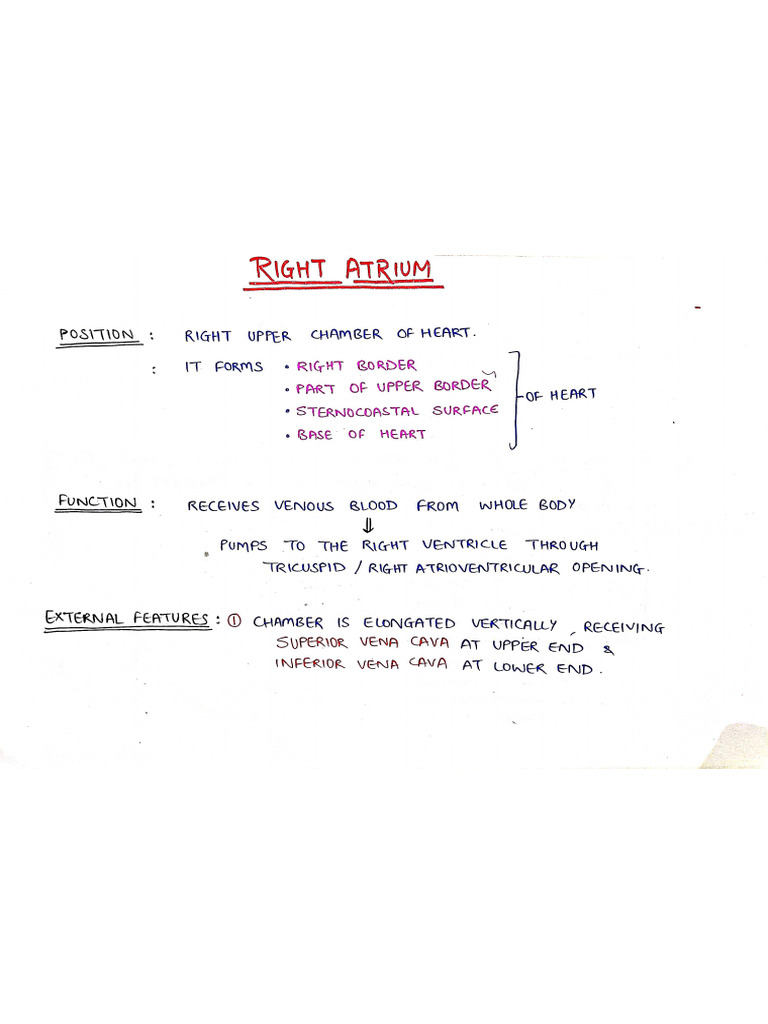 RIGHT ATRIUM
POSITION : RIGHT UPPER CHAMBER OF HEART.
: IT FORMS • RIGHT BORDER
• PART OF UPPER BORDER
• STERNOCOASTAL SURFACE
• BASE OF HEART
OF HEART
FUNCTION : RECEIVES VENOUS BLOOD FROM WHOLE BODY
⇓
PUMPS TO THE RIGHT VENTRICLE THROUGH
TRICUSPID / RIGHT ATRIOVENTRICULAR OPENING.
EXTERNAL FEATURES : ① CHAMBER IS ELONGATED VERTICALLY, RECEIVING
SUPERIOR VENA CAVA AT UPPER END &
INFERIOR VENA CAVA AT LOWER END.